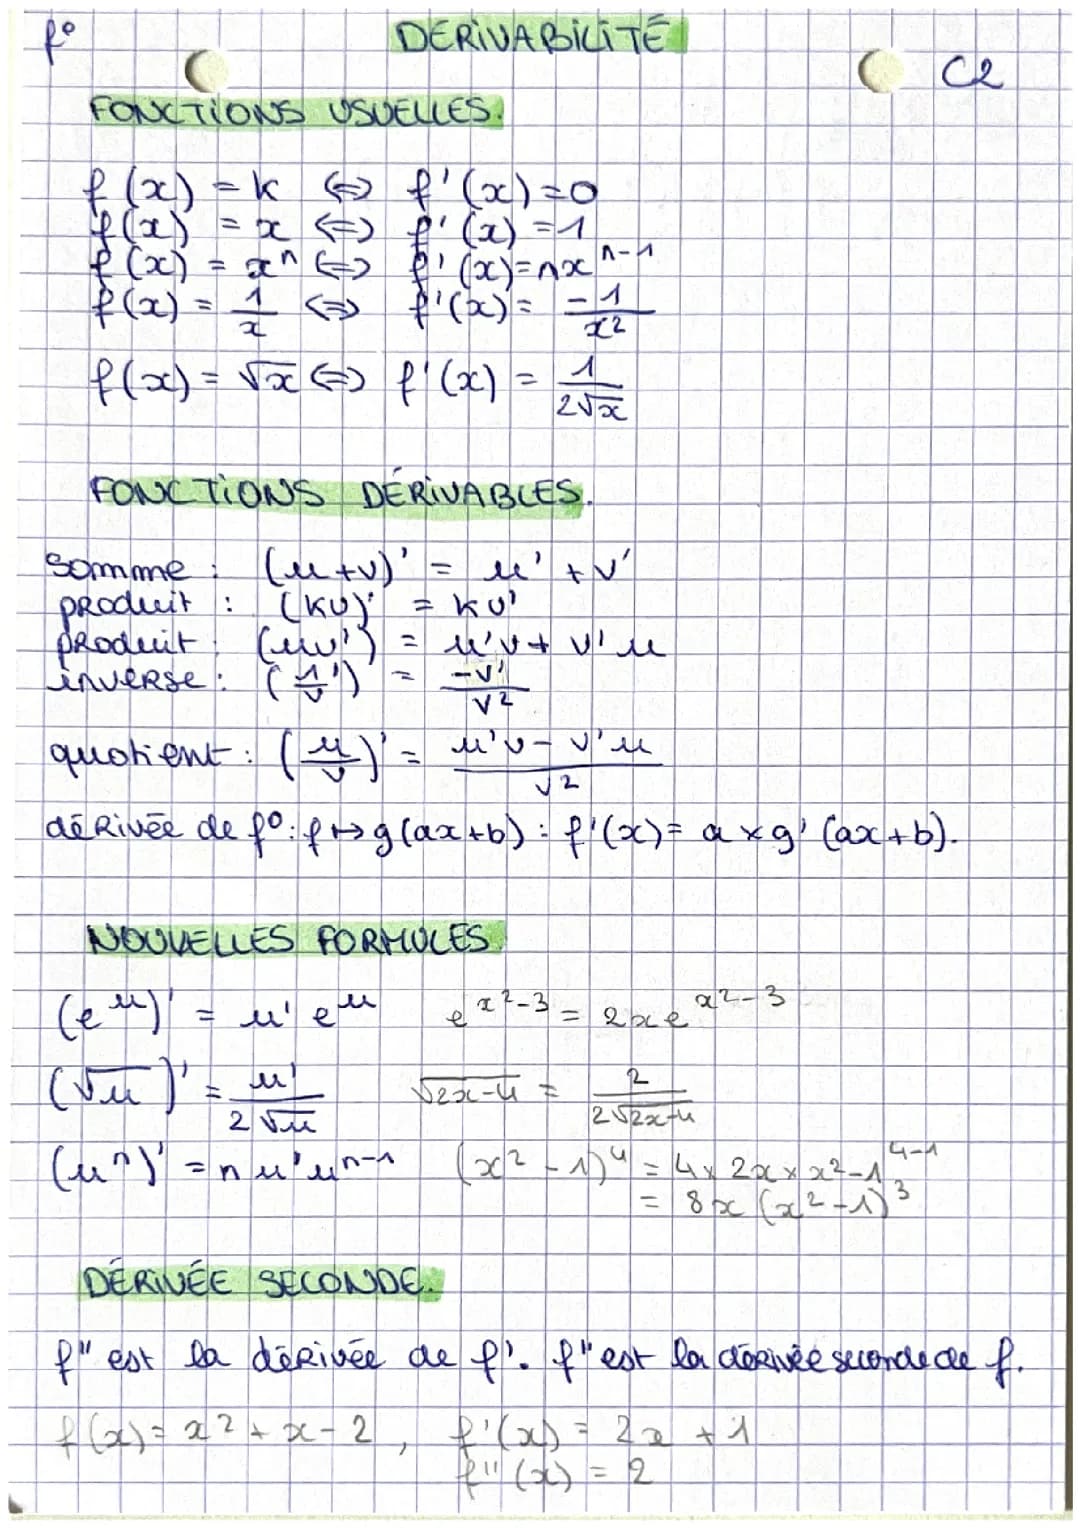 f° DERIVABILITÉ
C2
FONCTIONS USUELLES.
f(x) = k ⇔ f'(x) = 0
f(x) = x ⇔ f'(x) = 1
f(x) = xⁿ ⇔ f'(x) = nxⁿ⁻¹
f(x) = 1/x ⇔ f'(x) = -1/x²
f(x) = √x ⇔ f'(x) = 1/(2√x)
FONCTIONS DÉRIVABLES.
somme : (u+v)' = u' + v'
produit : (kv)' = kv'
produit : (uv') = u'v + v'u
inverse : (1/v') = -v'/v²
quotient : (u/v)' = (u'v - v'u)/v²
dérivée de f° : f ↦ g(ax+b) : f'(x) = a × g'(ax+b).
NOUVELLES FORMULES.
(eᵘ)' = u'eᵘ e^(x²-3) = 2xe^(x²-3)
(√u)' = u'/(2√u) √(2x-4) = 2/(2√(2x-4))
(uⁿ)' = n u'uⁿ⁻¹ (x²-1)⁴ = 4 × 2x × x²-1⁴⁻¹
= 8x (x²-1)³
DÉRIVÉE SECONDE.
f" est la dérivée de f'. f" est la dérivée seconde de f.
f(x) = x² + x - 2 , f'(x) = 2x + 1
f''(x) = 2